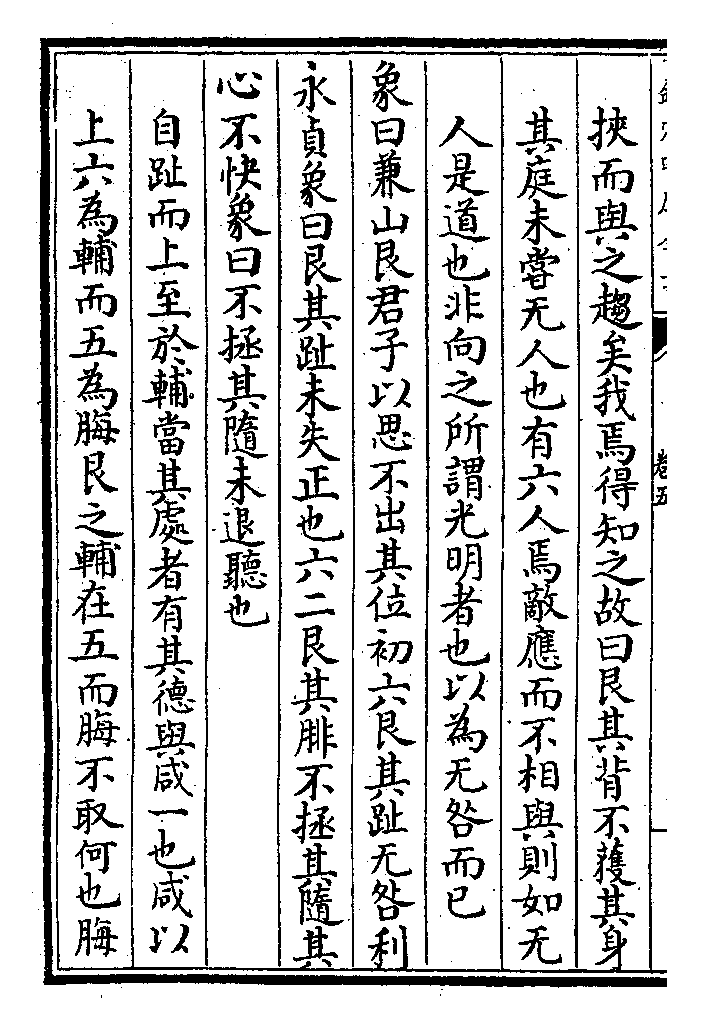 挾而與之趨矣我焉得知之故曰艮其背不獲其身
其庭未嘗无人也有六人焉敵應而不相與則如无
人是道也非向之所謂光明者也以為无咎而已
象曰兼山艮君子以思不出其位初六艮其趾无咎利
永貞象曰艮其趾未失正也六二艮其腓不拯其隨其
心不快象曰不拯其隨未退聽也
自趾而上至於輔當其處者有其德與咸一也咸以
上六為輔而五為脢艮之輔在五而脢不取何也脢
卷五